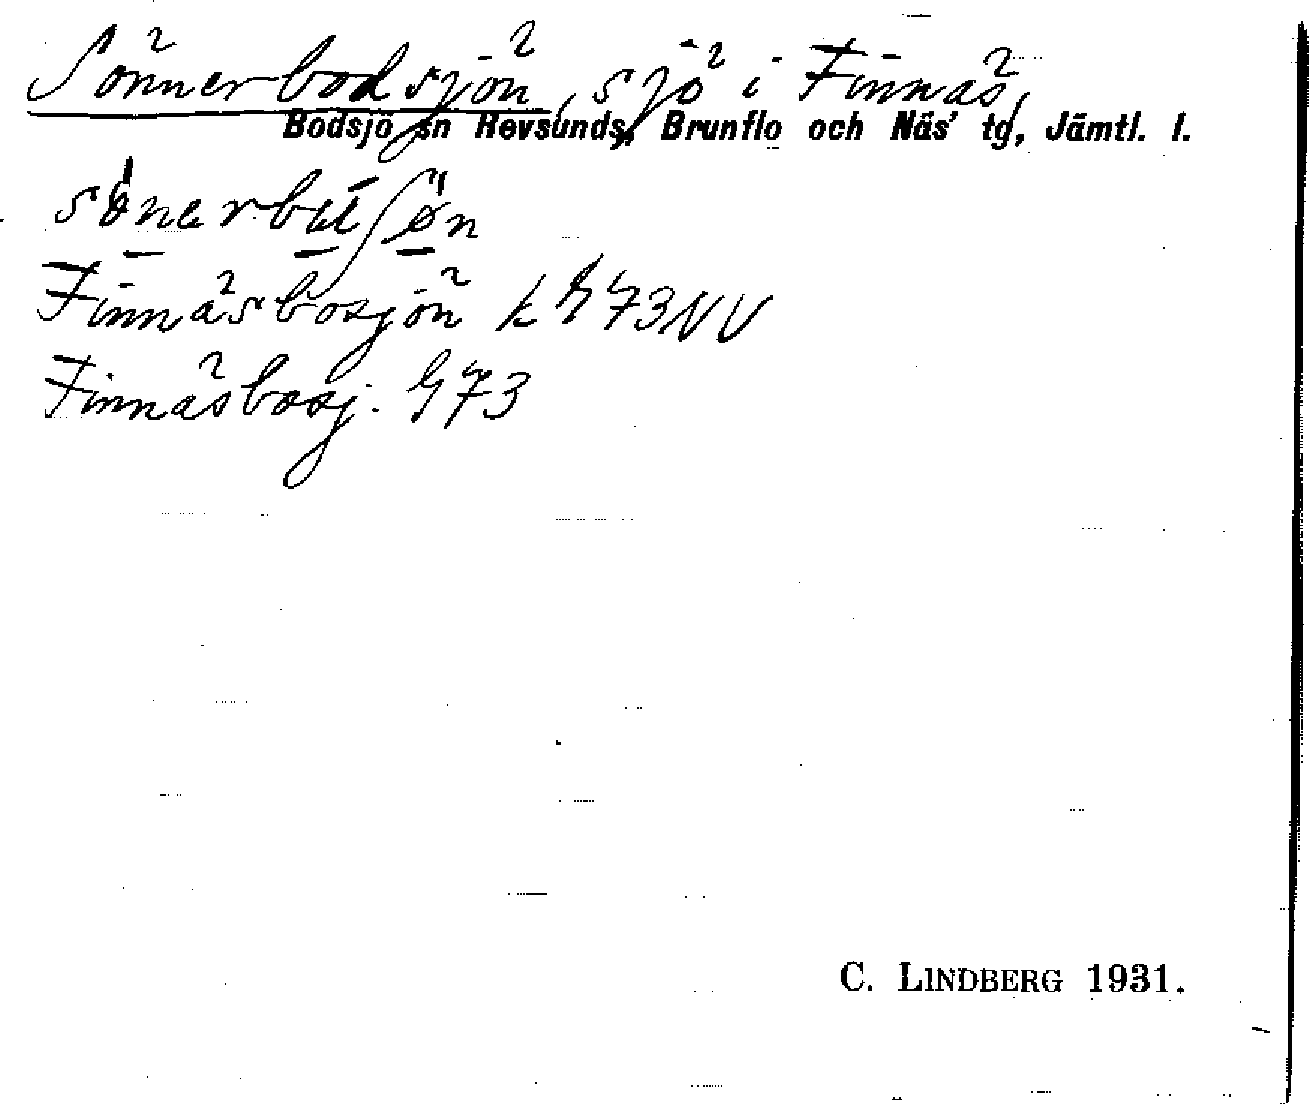 Sönnerbodsjön, sjö i Finnäs,
Bodsjö sn Revsunds, Brunflo och Näs' tg, Jämtl. l.
Finnäsbosjön k h 73 NV
Finnäsbosj. h 73
C. LINDBERG 1931.